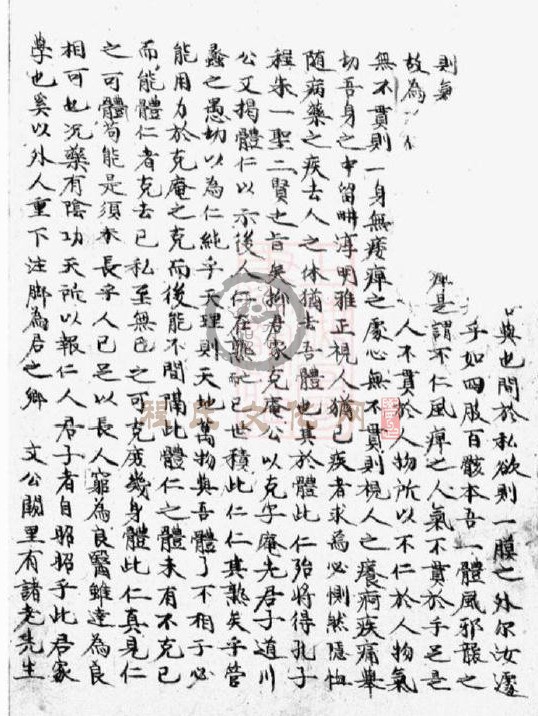 與也間於私欲則一膜之外尔汝遽
乎如四股百骸本吾一體風邪襲之
痺是謂不仁風痺之人氣不貫於手足是
人不貫於人物所以不仁於人物氣
則氣
故為
無不貫則一身無痿痺之處心無不貫則視人之癢痾疾痛舉
切吾身之中留畊淳明雅正視人猶己疾者求焉必惻然隱恤
随病藥之疾去人之体猶去吾體也其於體此仁殆將得孔子
程朱一聖二賢也旨矣抑君家克庵公以克字庵先君子道川
公又揭體仁以示後人仁在熟而已世積此仁仁其熟矣乎管
蠡之愚切以為仁純乎天理則天地萬物與吾體了不相于必
能用力於克庵之克而後能不間隔此體仁之體未有不克己
而能體仁者克去己私至無己之可克庶幾身體此仁真見仁
之可體苟能是須木長乎人已足以長人窮為良醫雖達為良
相可也况藥有陰功天所以報仁人君子者自昭昭乎此君家
學也奚以外人重下注脚為君之鄉 文公闕里有諸老先生
程氏文化网